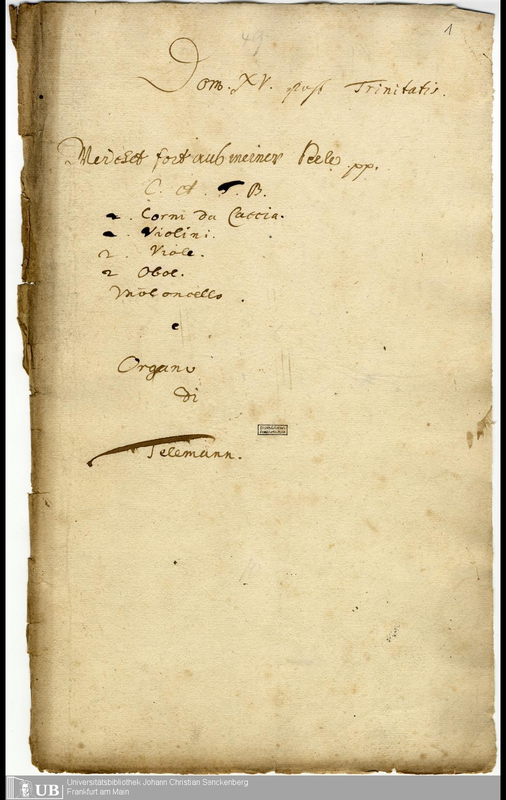 1
49
Dom. XV. post Trinitatis.
Weichet fort aus meiner Seele pp.
C. A. T. B.
2. Corni da Caccia.
2. Violini.
2. Viole.
2 Oboe.
Violoncello.
e
Organo
di
Telemann.
UB
Universitätsbibliothek Johann Christian Senckenberg
Frankfurt am Main